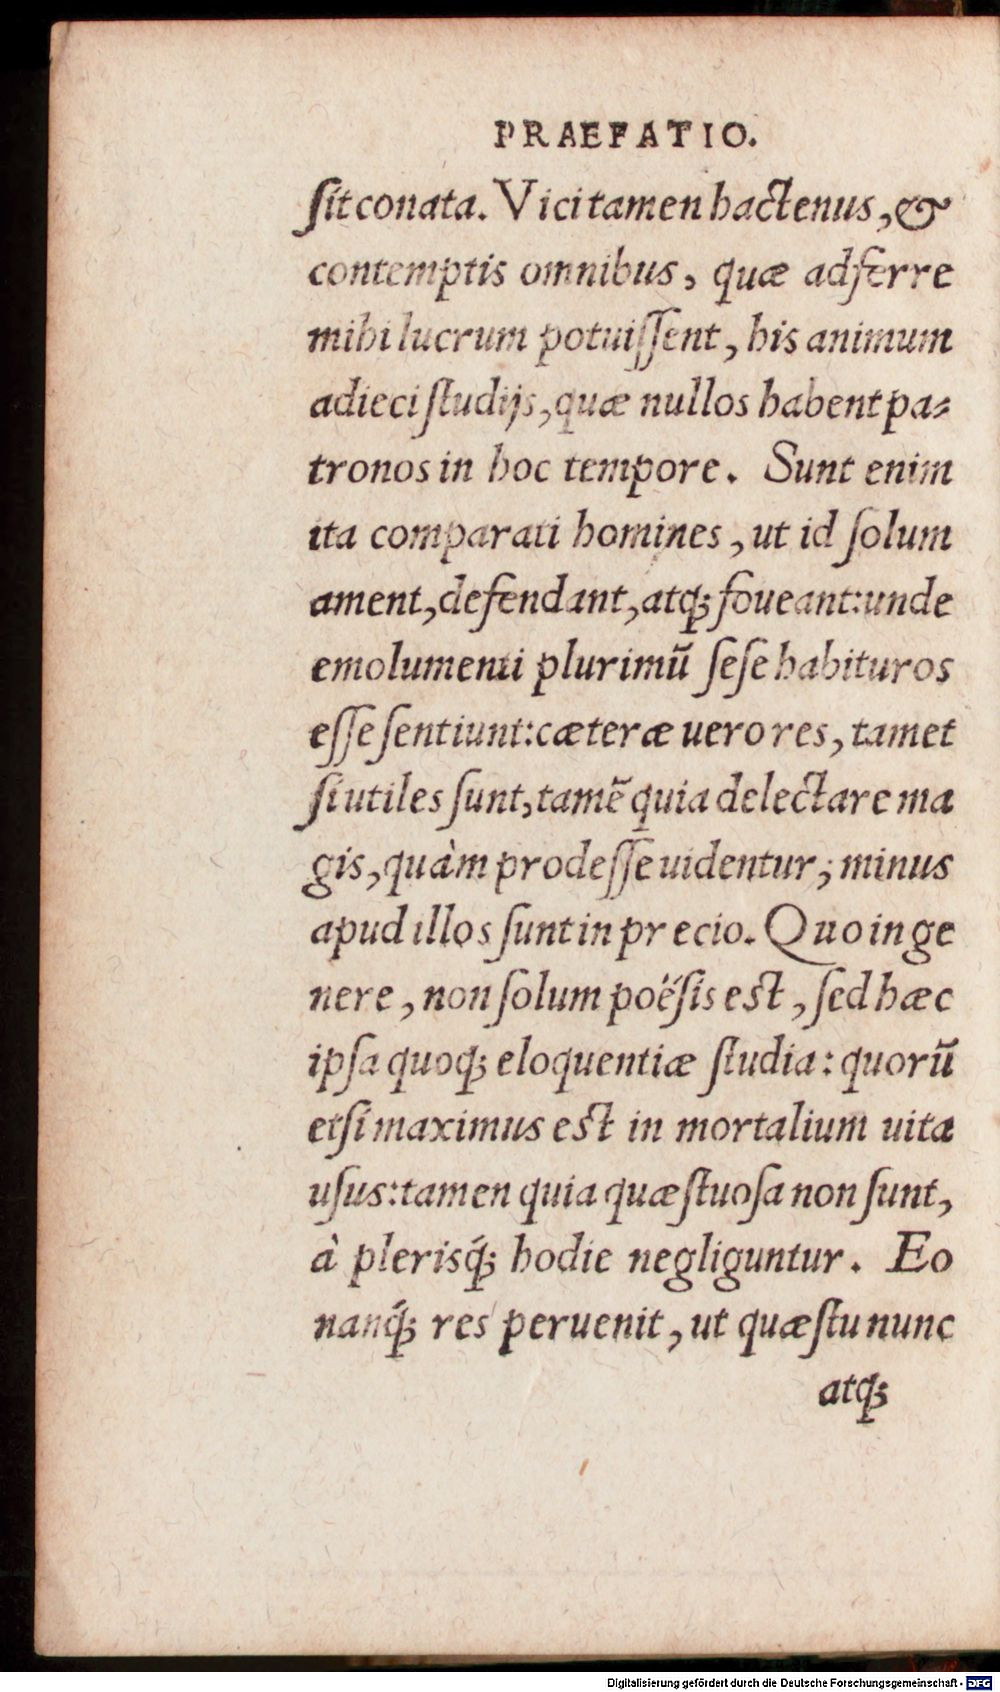 PRAEFATIO.
ſit conata. Vici tamen hactenus, &
contemptis omnibus, quæ adferre
mihi lucrum potuiſſent, his animum
adieci ſtudijs, quæ nullos habent pa-
tronos in hoc tempore. Sunt enim
ita comparati homines, ut id ſolum
ament, defendant, atq; foueant: unde
emolumenti plurimū ſeſe habituros
eſſe ſentiunt: cæteræ uero res, tamet
ſi utiles ſunt, tamē quia delectare ma
gis, quàm prodeſſe uidentur; minus
apud illos ſunt in precio. Quo in ge
nere, non ſolum poëſis eſt, ſed hæc
ipſa quoq; eloquentiæ ſtudia: quorū
etſi maximus eſt in mortalium uita
uſus: tamen quia quæſtuoſa non ſunt,
à pleriſq́; hodie negliguntur. Eo
nanq́; res peruenit, ut quæſtu nunc
atq;
Digitalisierung gefördert durch die Deutsche Forschungsgemeinschaft - DFG